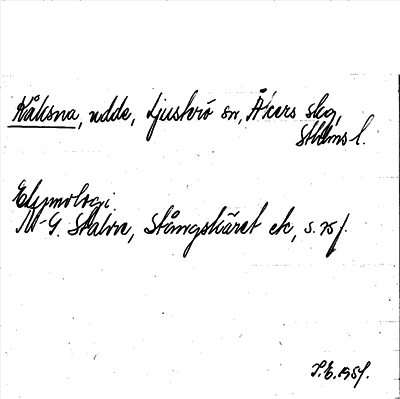 Kåksna, udde, Ljusterö sn, Åkers skg,
Sthlms l.
Etymologi
N-G. Stahre, Stångskäret etc, s. 75 f.
S.E. 1957.